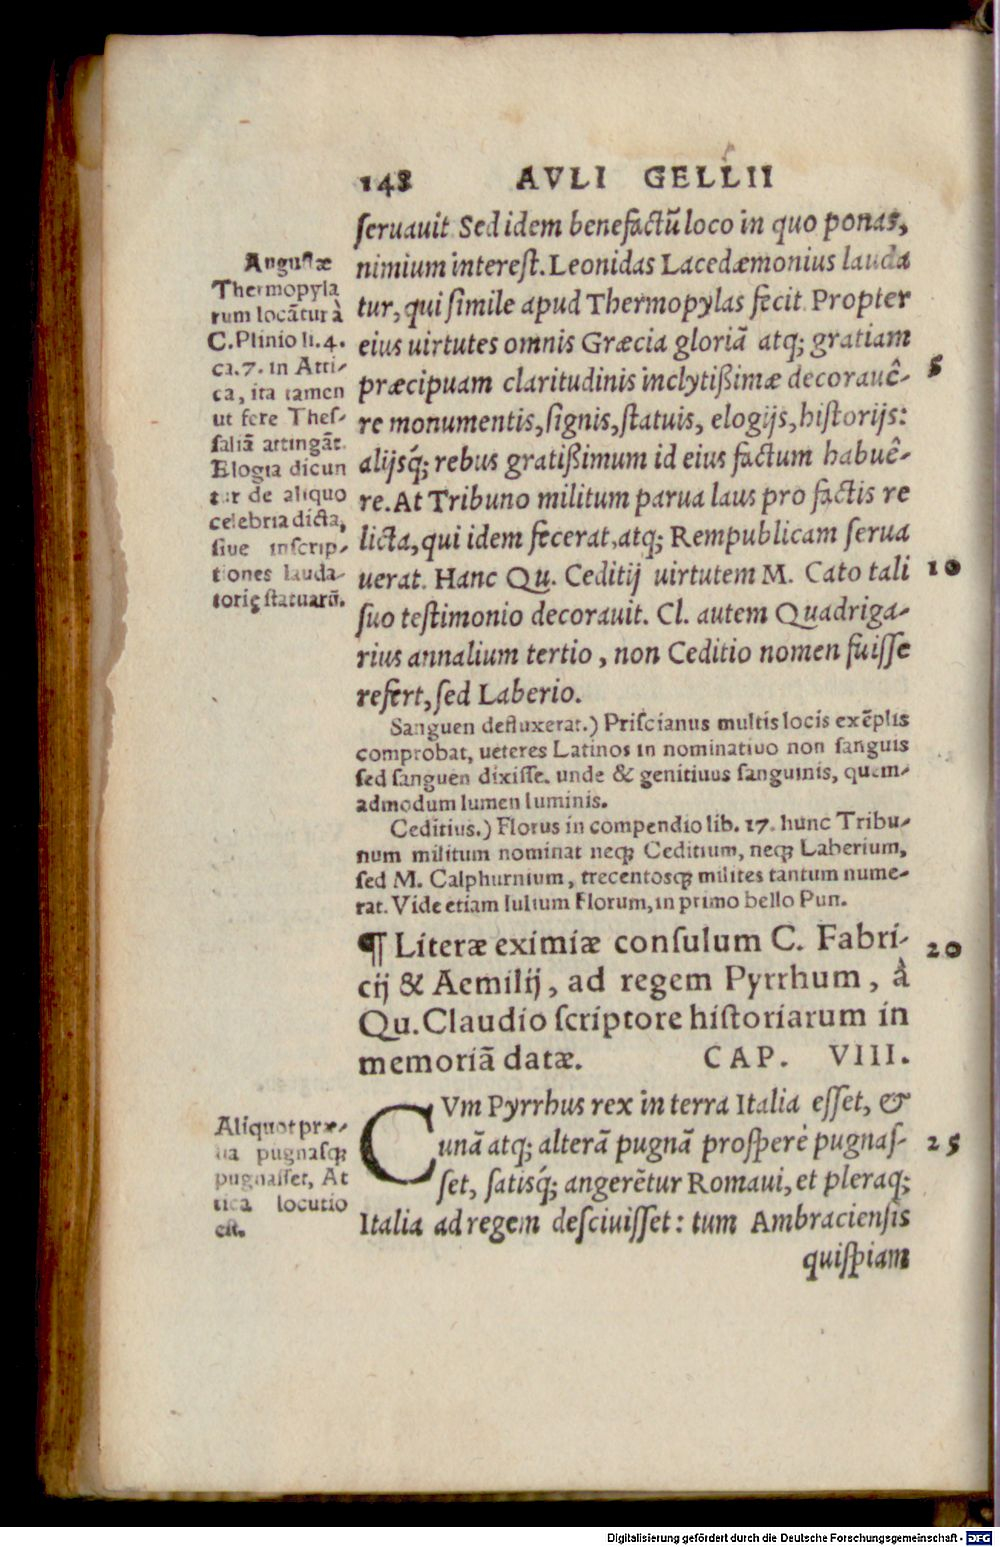 148 AVLI GELLII
ſeruauit. Sed idem benefactũ loco in quo ponas,
nimium intereſt. Leonidas Lacedæmonius lauda
tur, qui ſimile apud Thermopylas fecit. Propter
eius uirtutes omnis Græcia gloriã atq; gratiam
præcipuam claritudinis inclytißimæ decorauê-
re monumentis, ſignis, ſtatuis, elogijs, hiſtorijs:
alijsq́; rebus gratißimum id eius factum habuê-
re. At Tribuno militum parua laus pro factis re
licta, qui idem fecerat, atq; Rempublicam ſerua
uerat. Hanc Qu. Ceditij uirtutem M. Cato tali
ſuo teſtimonio decorauit. Cl. autem Quadriga-
rius annalium tertio, non Ceditio nomen fuiſſe
refert, ſed Laberio.
Anguſtæ
Thermopyla
rum locãtur à
C. Plinio li. 4.
ca. 7. in Atti-
ca, ita tamen
ut fere Theſ-
ſaliã attingãt.
Elogia dicun
tur de aliquo
celebria dicta,
ſiue inſcrip-
tiones lauda-
torię ſtatuarũ.
5
10
Sanguen defluxerat.) Priſcianus multis locis exẽplis
comprobat, ueteres Latinos in nominatiuo non ſanguis
ſed ſanguen dixiſſe. unde & genitiuus ſanguinis, quem-
admodum lumen luminis.
Ceditius.) Florus in compendio lib. 17. hunc Tribu-
num militum nominat neqꝫ Ceditium, neqꝫ Laberium,
ſed M. Calphurnium, trecentosqꝫ milites tantum nume-
rat. Vide etiam Iulium Florum, in primo bello Pun.
¶ Literæ eximiæ conſulum C. Fabri-
cij & Aemilij, ad regem Pyrrhum, à
Qu. Claudio ſcriptore hiſtoriarum in
memoriã datæ. CAP. VIII.
20
CVm Pyrrhus rex in terra Italia eſſet, &
unã atq; alterã pugnã proſperè pugnaſ-
ſet, ſatisq́; angerẽtur Romaui, et pleraq;
Italia ad regem deſciuiſſet: tum Ambracienſis
quiſpiam
25
Aliquot præ-
lia pugnaſqꝫ
pugnaſſet, At
tica locutio
eſt.
Digitalisierung gefördert durch die Deutsche Forschungsgemeinschaft - DFG